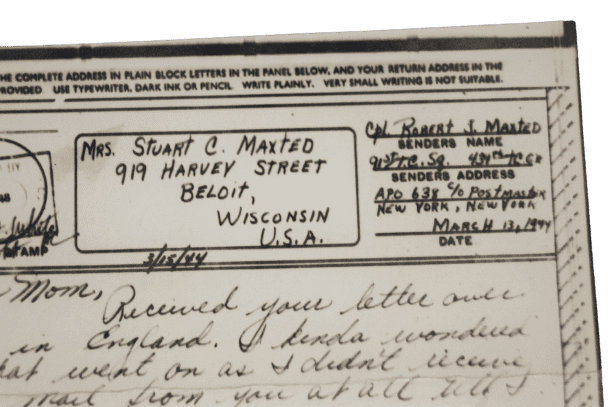 HE COMPLETE ADDRESS IN PLAIN BLOCK LETTERS IN THE PANEL BELOW, AND YOUR RETURN ADDRESS IN THE
PROVIDED. USE TYPEWRITER, DARK INK OR PENCIL. WRITE PLAINLY. VERY SMALL WRITING IS NOT SUITABLE.
MRS. STUART C. MAXTED
919 HARVEY STREET
BELOIT,
WISCONSIN
U.S.A.
Cpl. ROBERT J. MAXTED
SENDERS NAME
91ST T.C. Sq.
SENDERS ADDRESS
APO 638 c/o Postmaster
NEW YORK, NEW YORK
MARCH 13, 1944
DATE
STAMP
3/15/44
Mom,
Received your letter over
in England. I kinda wondered
hat went on as I didn't receive
mail from you at all till I